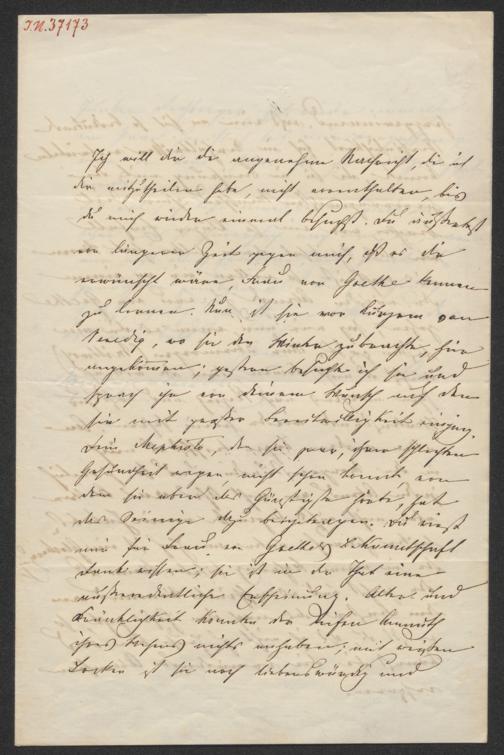 I.N. 37173
Ich will dir die angenehme Nachricht, die ich
dir mitzutheilen habe, nicht vorenthalten, bis
du mich wieder einmal besuchst. Du äußertest
vor längerer Zeit gegen mich, daß es dir
erwünscht wäre, Frau von Goethe kennen
zu lernen. Nun ist sie vor Kurzem von
Venedig, wo sie den Winter zubrachte, hier
angekommen; gestern besuchte ich sie und
sprach ihr von deinem Wunsch auf den
sie mit großer Bereitwilligkeit einging.
Dein Mephisto, den sie zwar, ihrer schlechten
Gesundheit wegen nicht sehen konnte von
dem sie aber das Günstigste hörte, hat
das Seinige dazu beigetragen. Du wirst
mir für Frau v Goethes Bekanntschaft
Dank wissen; sie ist in der That eine
außerordentliche Erscheinung. Alter und
Kränklichkeit konnten der Anmuth
ihres Wesens nichts anhaben; mit weißen
Locken ist sie noch liebenswürdig und